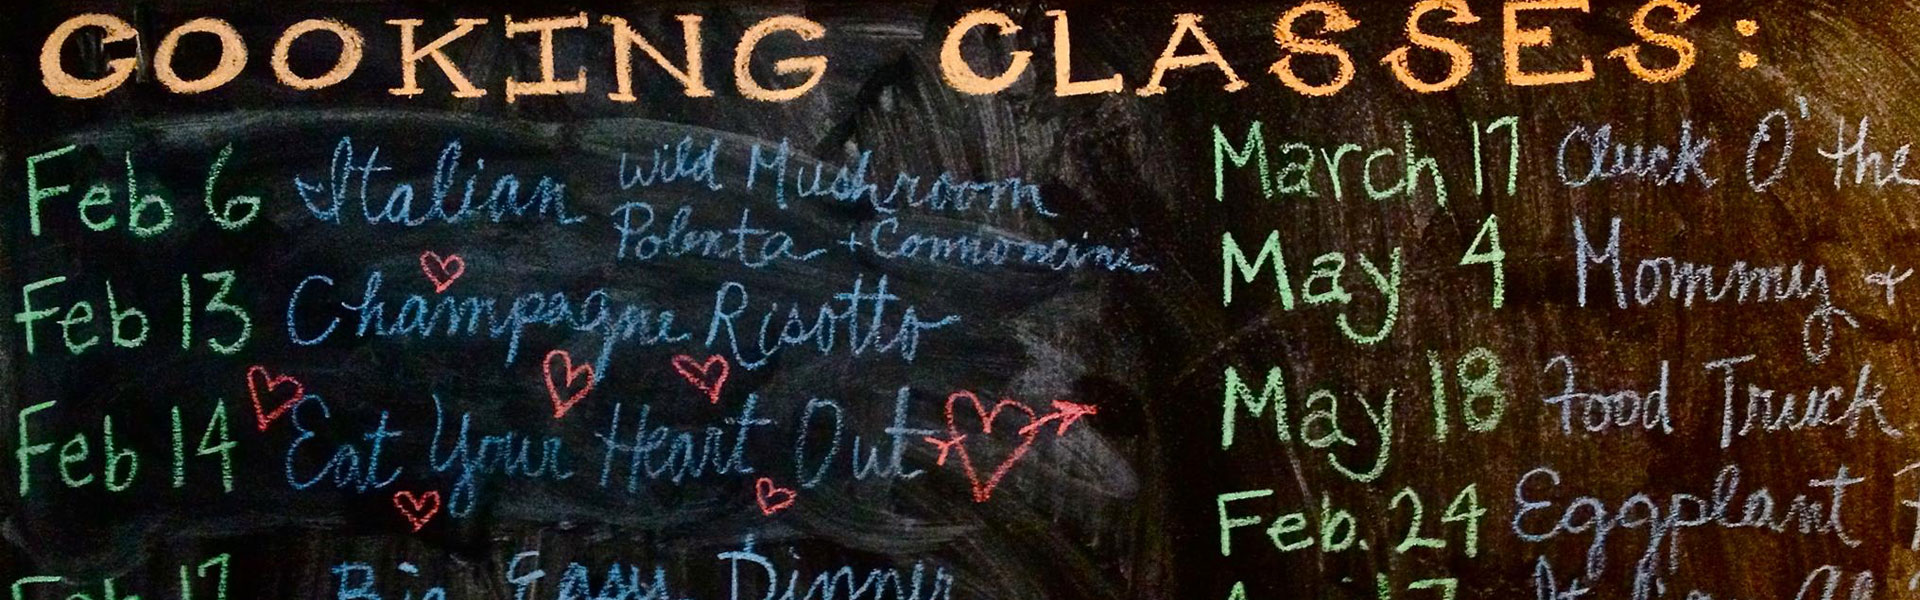 COOKING CLASSES:
Feb 6 Italian Wild Mushroom
Polenta +
Feb 13 Champagne Risotto
Feb 14 Eat Your Heart Out
Feb 17 Big Easy Dinner
March 17 Cluck O' the
May 4 Mommy +
May 18 Food Truck
Feb. 24 Eggplant
17 Italian